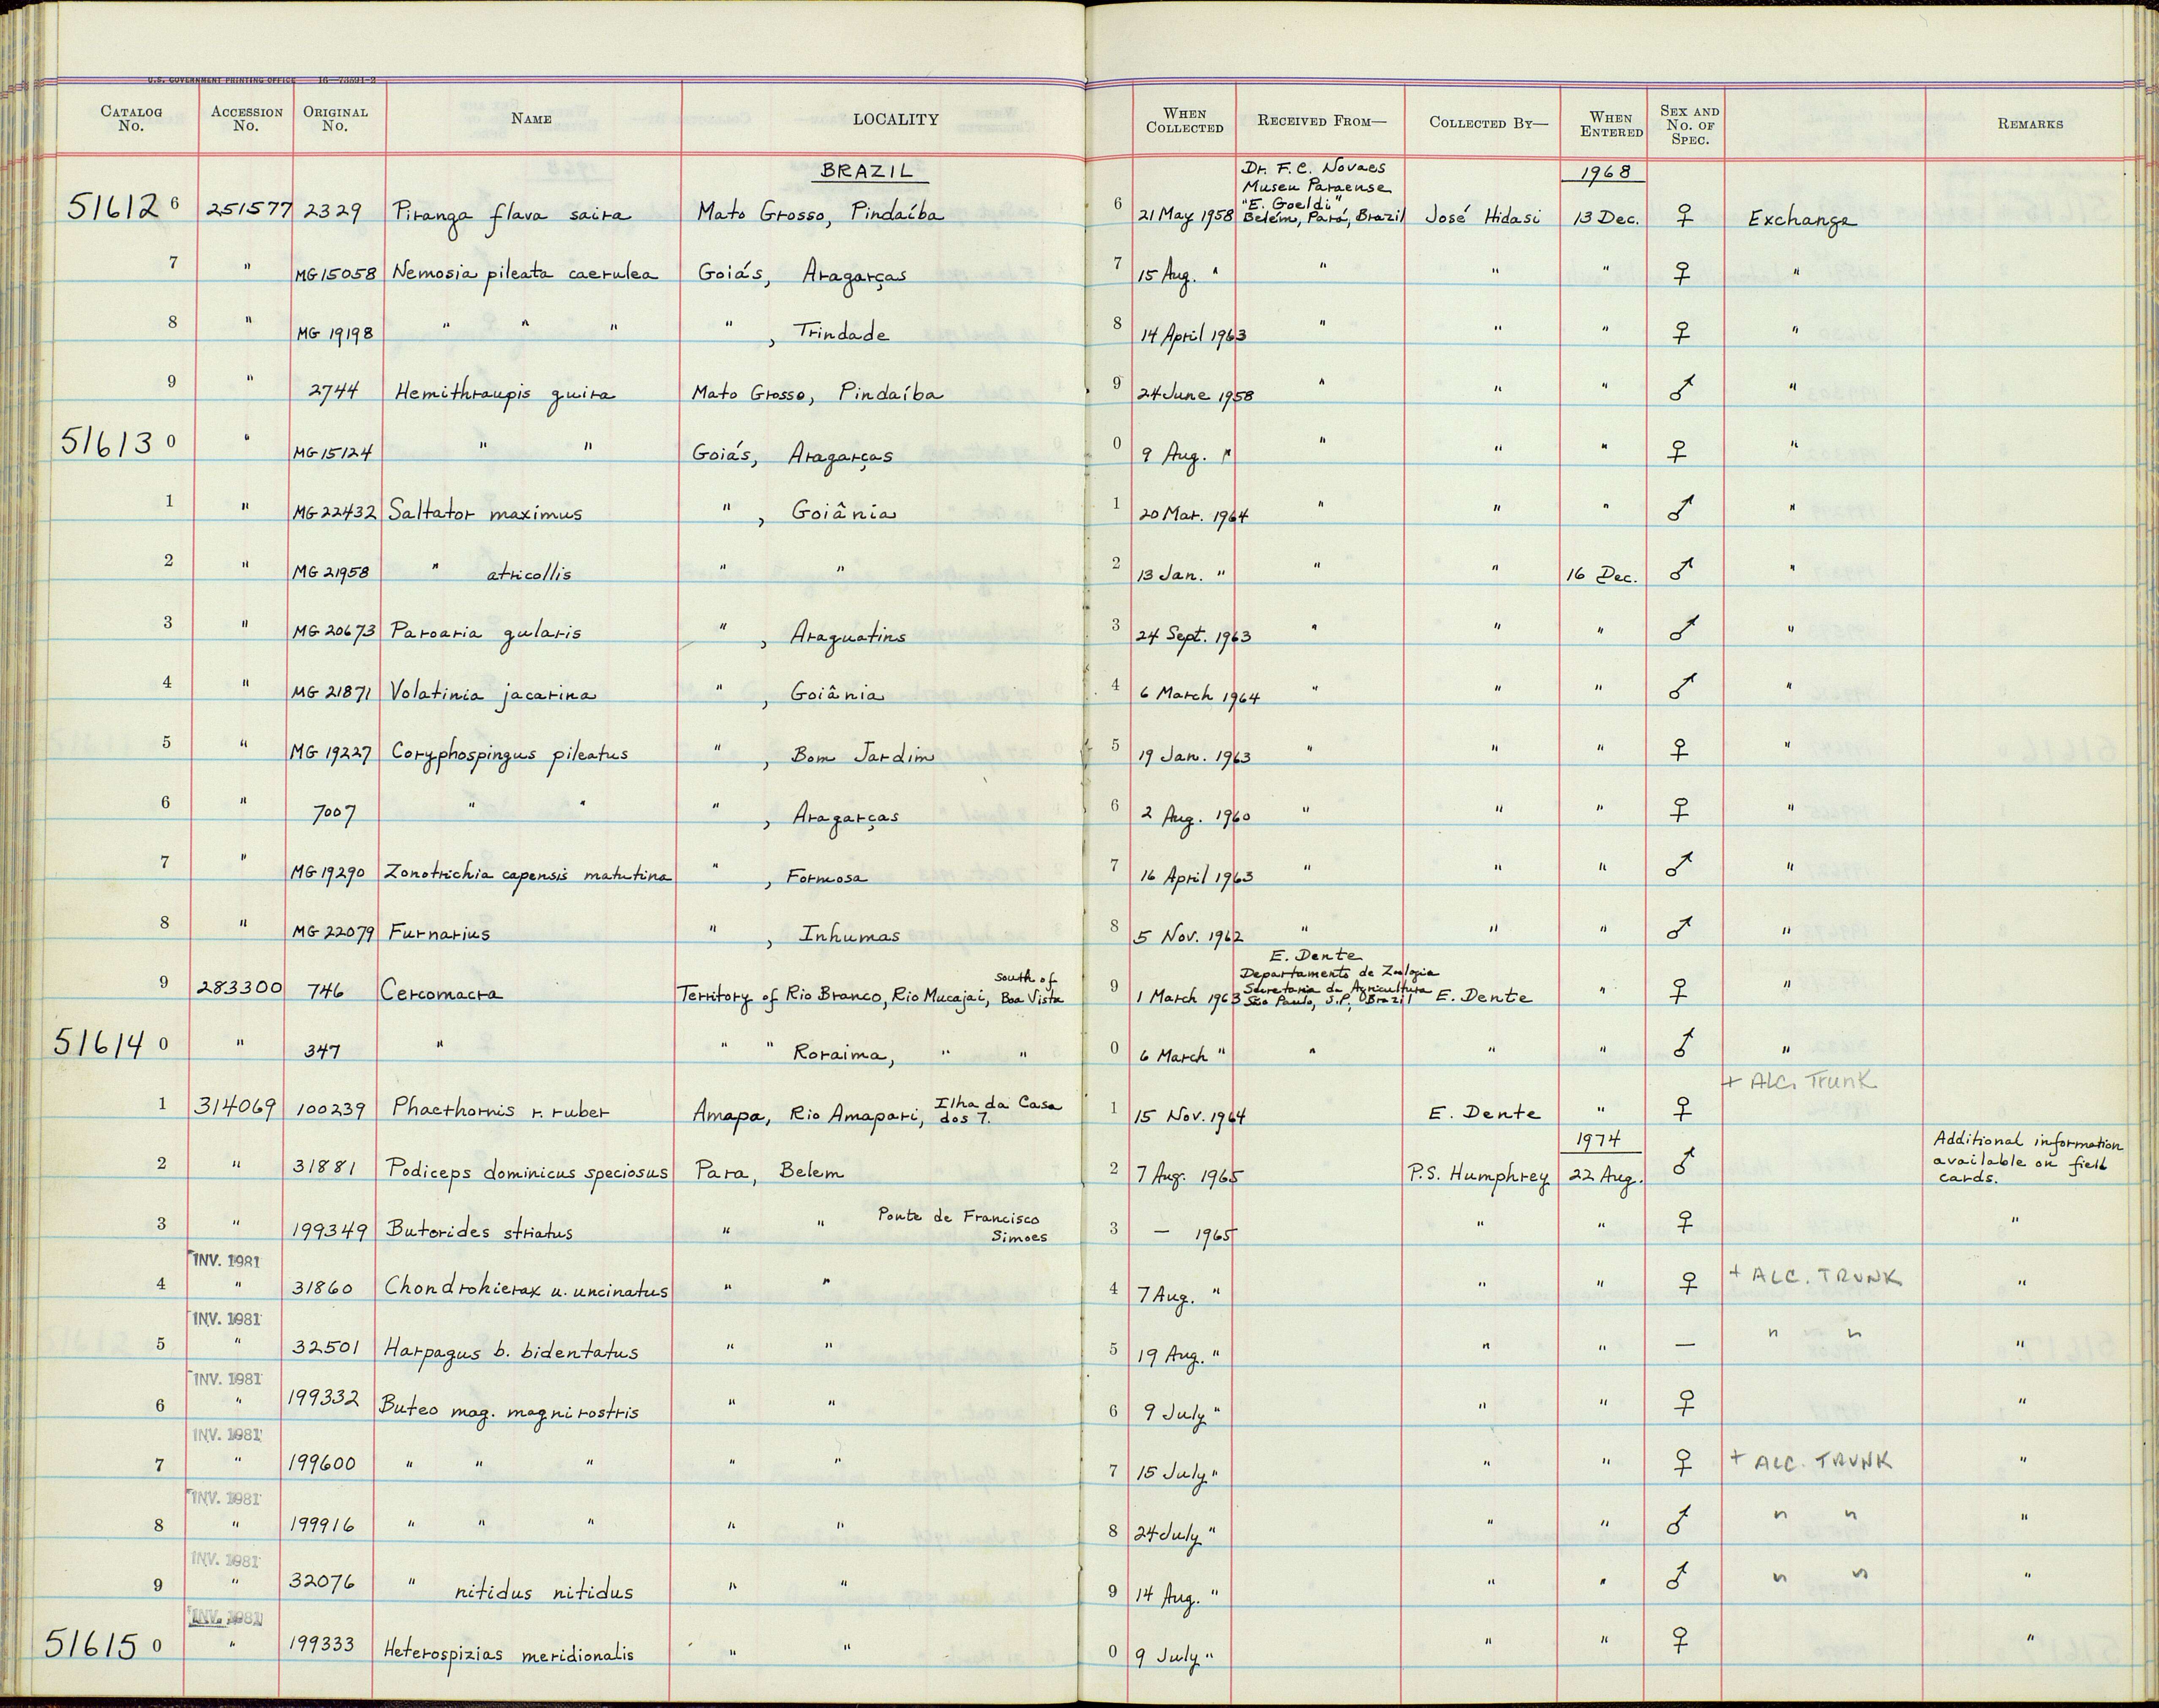 U.S. GOVERNMENT PRINTING OFFICE 16—73591-2
CATALOG No. ACCESSION No. ORIGINAL No. NAME LOCALITY WHEN COLLECTED RECEIVED FROM— COLLECTED BY— WHEN ENTERED SEX AND No. OF SPEC. REMARKS
BRAZIL Dr. F.C. Novaes 1968
Museu Paraense
"E. Goeldi"
51612 6 251577 2329 Piranga flava saira Mato Grosso, Pindaíba 6 21 May 1958 Belém, Pará, Brazil José Hidasi 13 Dec. ♀ Exchange
7 " MG 15058 Nemosia pileata caerulea Goiás, Aragarças 7 15 Aug. " " " " ♀ "
8 " MG 19198 " " " " , Trindade 8 14 April 1963 " " " ♀ "
9 " 2744 Hemithraupis guira Mato Grosso, Pindaíba 9 24 June 1958 " " " ♂ "
51613 0 " MG 15124 " " Goiás, Aragarças 0 9 Aug. " " " " ♀ "
1 " MG 22432 Saltator maximus " , Goiânia 1 20 Mar. 1964 " " " ♂ "
2 " MG 21958 " atricollis " " 2 13 Jan. " " " 16 Dec. ♂ "
3 " MG 20673 Paroaria gularis " , Araguatins 3 24 Sept. 1963 " " " ♂ "
4 " MG 21871 Volatinia jacarina " , Goiânia 4 6 March 1964 " " " ♂ "
5 " MG 19227 Coryphospingus pileatus " , Bom Jardim 5 19 Jan. 1963 " " " ♀ "
6 " 7007 " " " , Aragarças 6 2 Aug. 1960 " " " ♀ "
7 " MG 19290 Zonotrichia capensis matutina " , Formosa 7 16 April 1963 " " " ♂ "
8 " MG 22079 Furnarius " , Inhumas 8 5 Nov. 1962 " " " ♂ "
E. Dente
south of Departamento de Zoologia
Secretaria da Agricultura
9 283300 746 Cercomacra Territory of Rio Branco, Rio Mucajai, Boa Vista 9 1 March 1963 São Paulo, S.P., Brazil E. Dente " ♀ "
51614 0 " 347 " " " Roraima, " " 0 6 March " " " " ♂ "
+ ALC. Trunk
1 314069 100239 Phaethornis r. ruber Amapa, Rio Amapari, Ilha da Casa dos 7. 1 15 Nov. 1964 E. Dente " ♀
1974 Additional information
2 " 31881 Podiceps dominicus speciosus Para, Belem 2 7 Aug. 1965 P.S. Humphrey 22 Aug. ♂ available on field
cards.
3 " 199349 Butorides striatus " " Ponte de Francisco Simoes 3 — 1965 " " ♀ "
INV. 1981
4 " 31860 Chondrohierax u. uncinatus " " 4 7 Aug. " " " ♀ + ALC. TRUNK "
INV. 1981
5 " 32501 Harpagus b. bidentatus " " 5 19 Aug. " " " — " " "
INV. 1981
6 " 199332 Buteo mag. magnirostris " " 6 9 July " " " ♀ "
INV. 1981
7 " 199600 " " " " " 7 15 July " " " ♀ + ALC. TRUNK "
INV. 1981
8 " 199916 " " " " " 8 24 July " " " ♂ " " "
INV. 1981
9 " 32076 " nitidus nitidus " " 9 14 Aug. " " " ♂ " " "
INV. 1981
51615 0 " 199333 Heterospizias meridionalis " " 0 9 July " " " ♀ "